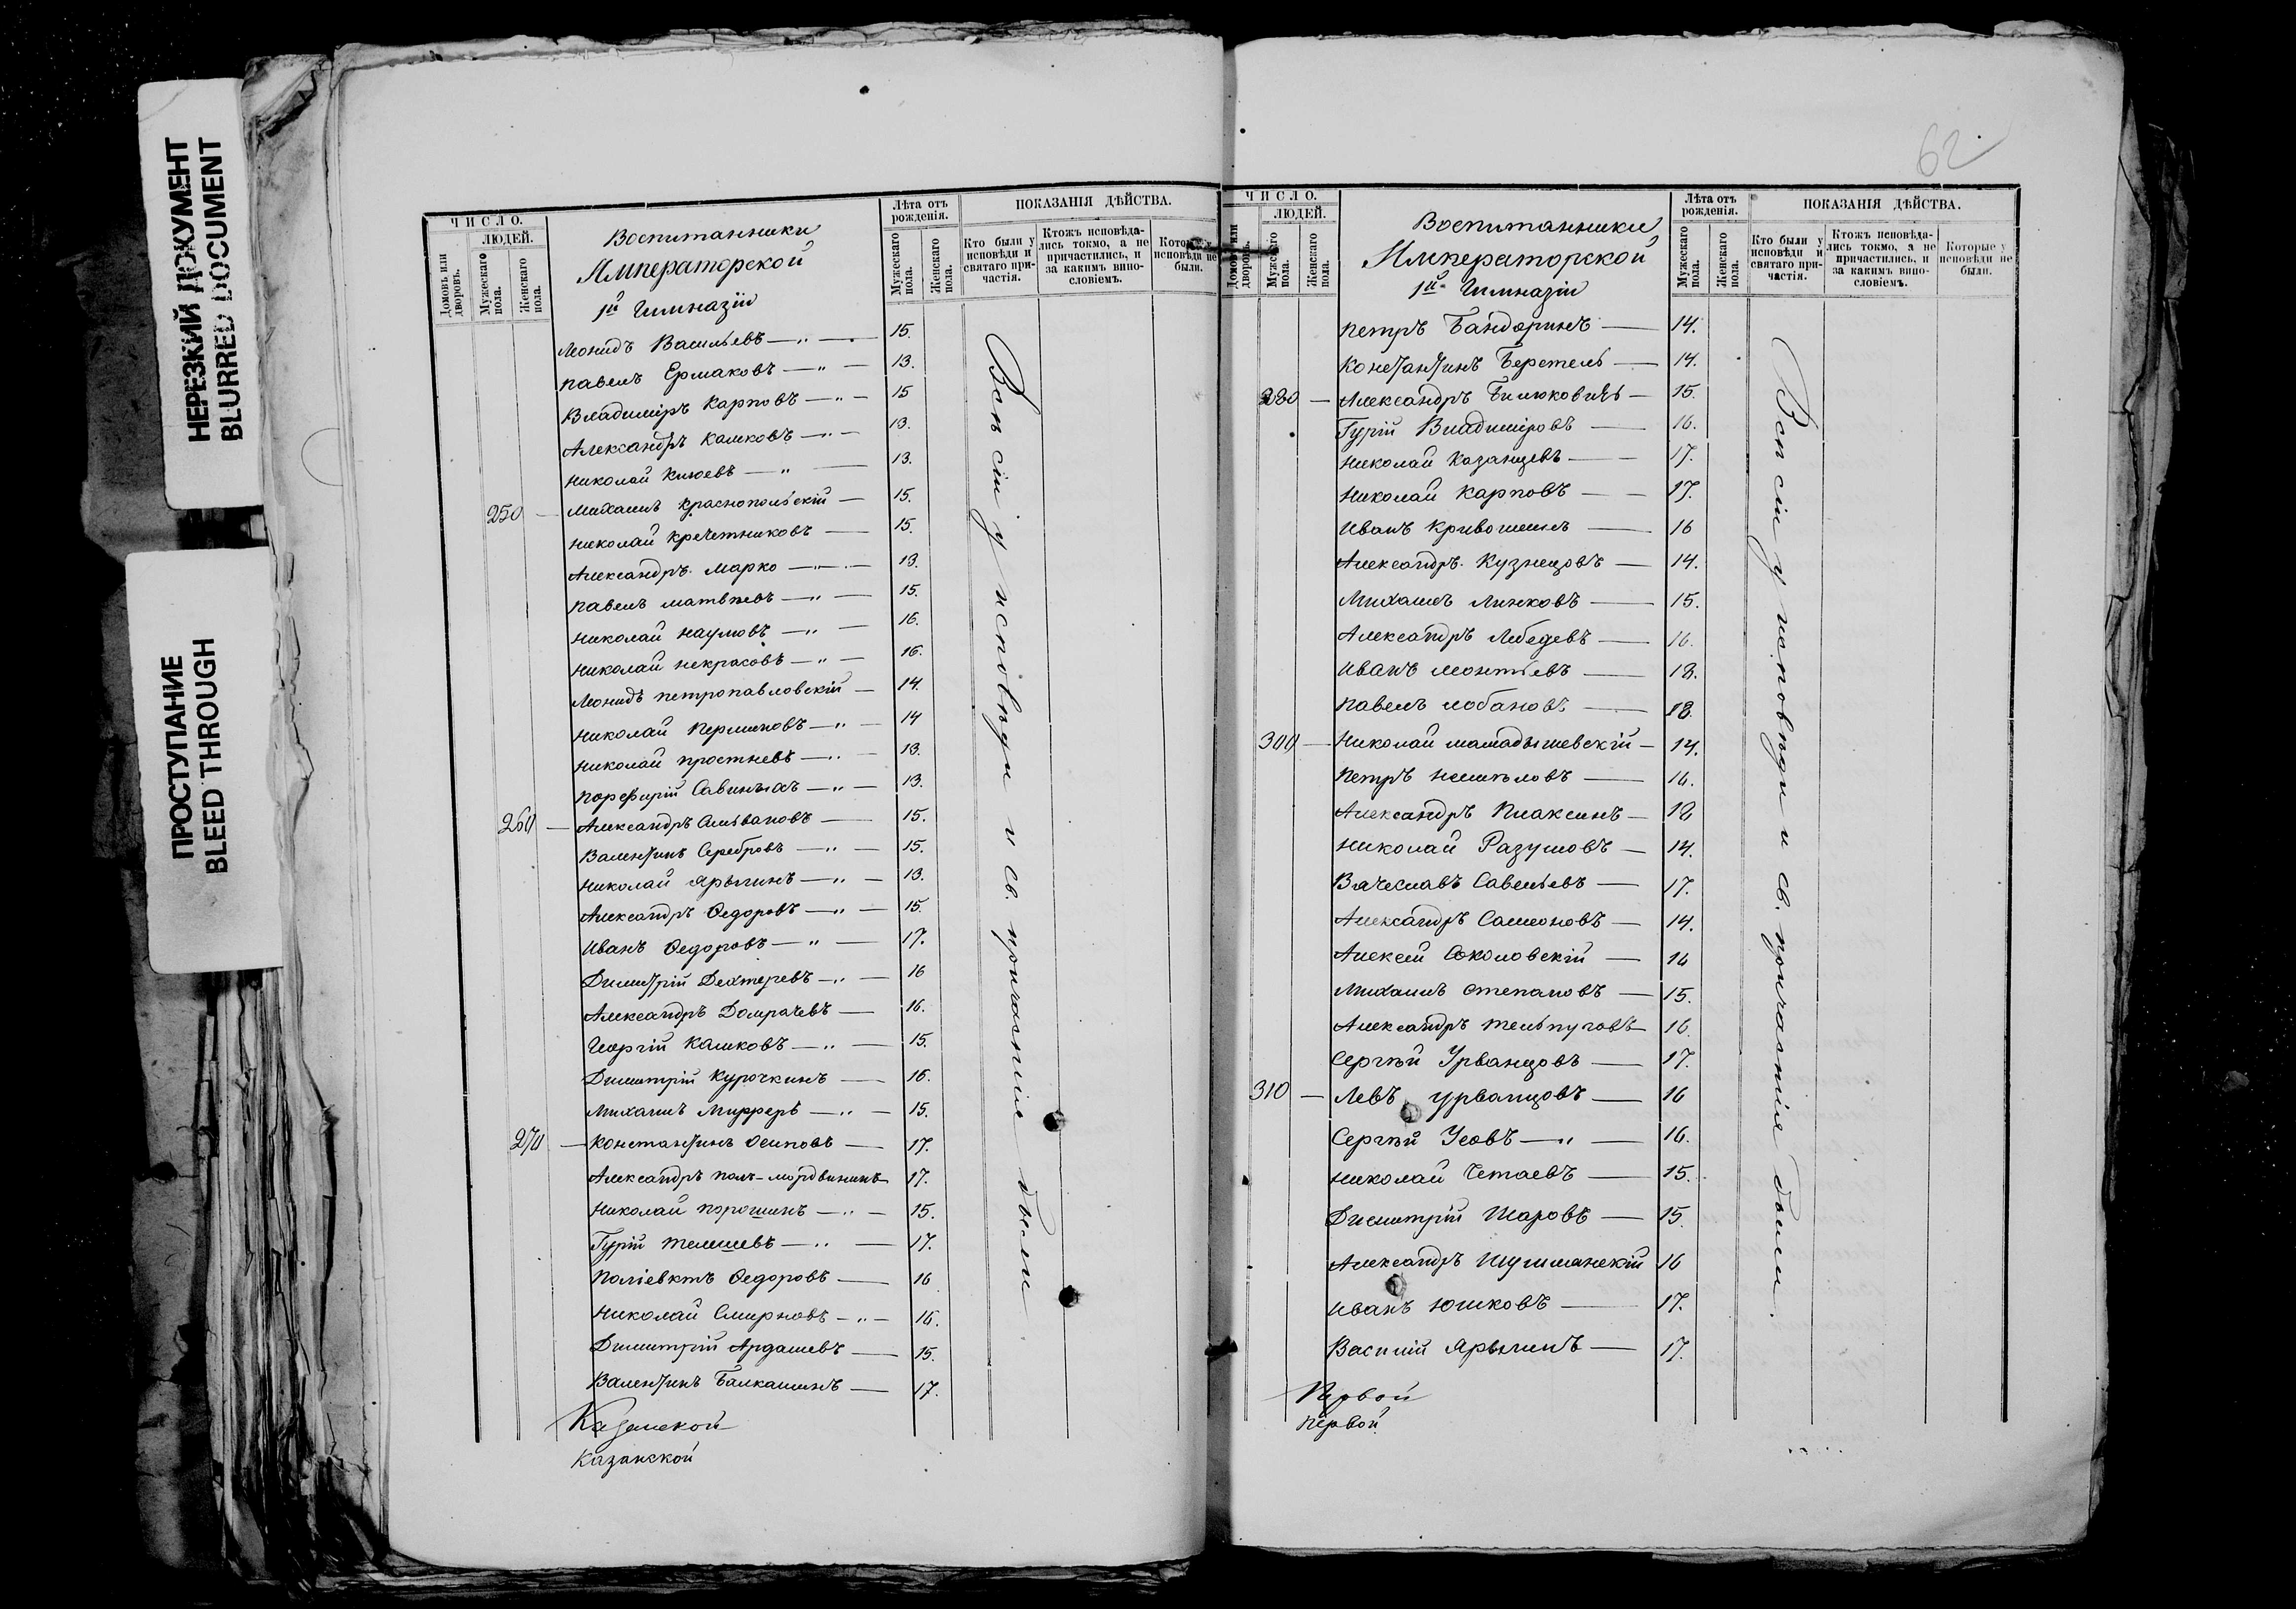 НЕРЕЗКИЙ ДОКУМЕНТ
BLURRED DOCUMENT
ПРОСТУПАНИЕ
BLEED THROUGH
ЧИСЛО.
ЛЮДЕЙ.
Домовъ или дворовъ.
Мужескаго пола.
Женскаго пола.
Воспитанники
Императорской
1й Гимназіи
Лѣта отъ рожденія.
Мужескаго пола.
Женскаго пола.
ПОКАЗАНІЯ ДѢЙСТВА.
Кто были у исповѣди и святаго причастія.
Ктожъ исповѣдались токмо, а не причастились, и за какимъ винословіемъ.
Которые у исповѣди не были.
Леонидъ Васильевъ — „ — 15.
Павелъ Ермаковъ — „ — 13.
Владиміръ Карповъ — „ — 15
Александръ Калиновъ — „ — 13.
Николай Клюевъ — „ — 13.
250 — Михаилъ Краснопольскій — 15.
Николай Кречетниковъ — 15.
Александръ Марко — „ — 13.
Павелъ Матвѣевъ — „ — 15.
Николай Наумовъ — „ — 16.
Николай Некрасовъ — „ — 16.
Леонидъ Петропавловскій — 14.
Николай Перминовъ — „ — 14
Николай Простневъ — „ 13.
Порфирій Савиныхъ — „ — 13.
260 — Александръ Сельвановъ — 15.
Валентинъ Серебровъ — „ — 15.
Николай Ярыгинъ — „ — 13.
Александръ Ѳедоровъ — „ — 15.
Иванъ Ѳедоровъ — „ — 17.
Димитрій Дехтеревъ — „ — 16
Александръ Домрачевъ — 16.
Георгій Калиновъ — „ — 15.
Димитрій Курочкинъ — 16.
Михаилъ Мирреръ — „ — 15.
270 — Константинъ Осиповъ — 17.
Александръ Поль-Мордвининъ 17.
Николай Порошинъ — „ — 15.
Гурій Телешевъ — „ — 17.
Поліевктъ Ѳедоровъ — 16
Николай Смирновъ — „ — 16.
Димитрій Ардашевъ — 15.
Валентинъ Балкашинъ — 17.
Всѣ сіи у исповѣди и св. причастіи были
Казанской
Казанской
62
ЧИСЛО.
ЛЮДЕЙ.
Домовъ или дворовъ.
Мужескаго пола.
Женскаго пола.
Воспитанники
Императорской
1й Гимназіи
Лѣта отъ рожденія.
Мужескаго пола.
Женскаго пола.
ПОКАЗАНІЯ ДѢЙСТВА.
Кто были у исповѣди и святаго причастія.
Ктожъ исповѣдались токмо, а не причастились, и за какимъ винословіемъ.
Которые у исповѣди не были.
Петръ Бандоринъ — 14.
Константинъ Беретель — 14.
280 — Александръ Билюковичъ — 15.
Гурій Владиміровъ — 16.
Николай Казанцевъ — 17.
Николай Карповъ — 17.
Иванъ Кривошеинъ — 16
Александръ Кузнецовъ — 14.
Михаилъ Линковъ — 15.
Александръ Лебедевъ — 16.
Иванъ Леонтьевъ — 18.
Павелъ Лобановъ — 18.
300 — Николай Мамадышевскій — 14.
Петръ Немѣловъ — 16.
Александръ Плаксинъ — 18
Николай Разумовъ — 14.
Вячеславъ Савельевъ — 17.
Александръ Самсоновъ — 14.
Алексѣй Соколовскій — 16
Михаилъ Степановъ — 15.
Александръ Тельпуговъ — 16.
Сергѣй Урванцовъ — 17.
310 — Левъ Урванцовъ — 16
Сергѣй Усовъ — „ — 16.
Николай Четаевъ — 15.
Димитрій Шаровъ — 15.
Александръ Шушманскій 16
Иванъ Юшковъ — 17.
Василій Ярыгинъ — 17.
Всѣ сіи у исповѣди и св. причастіи были.
Первой
Первой